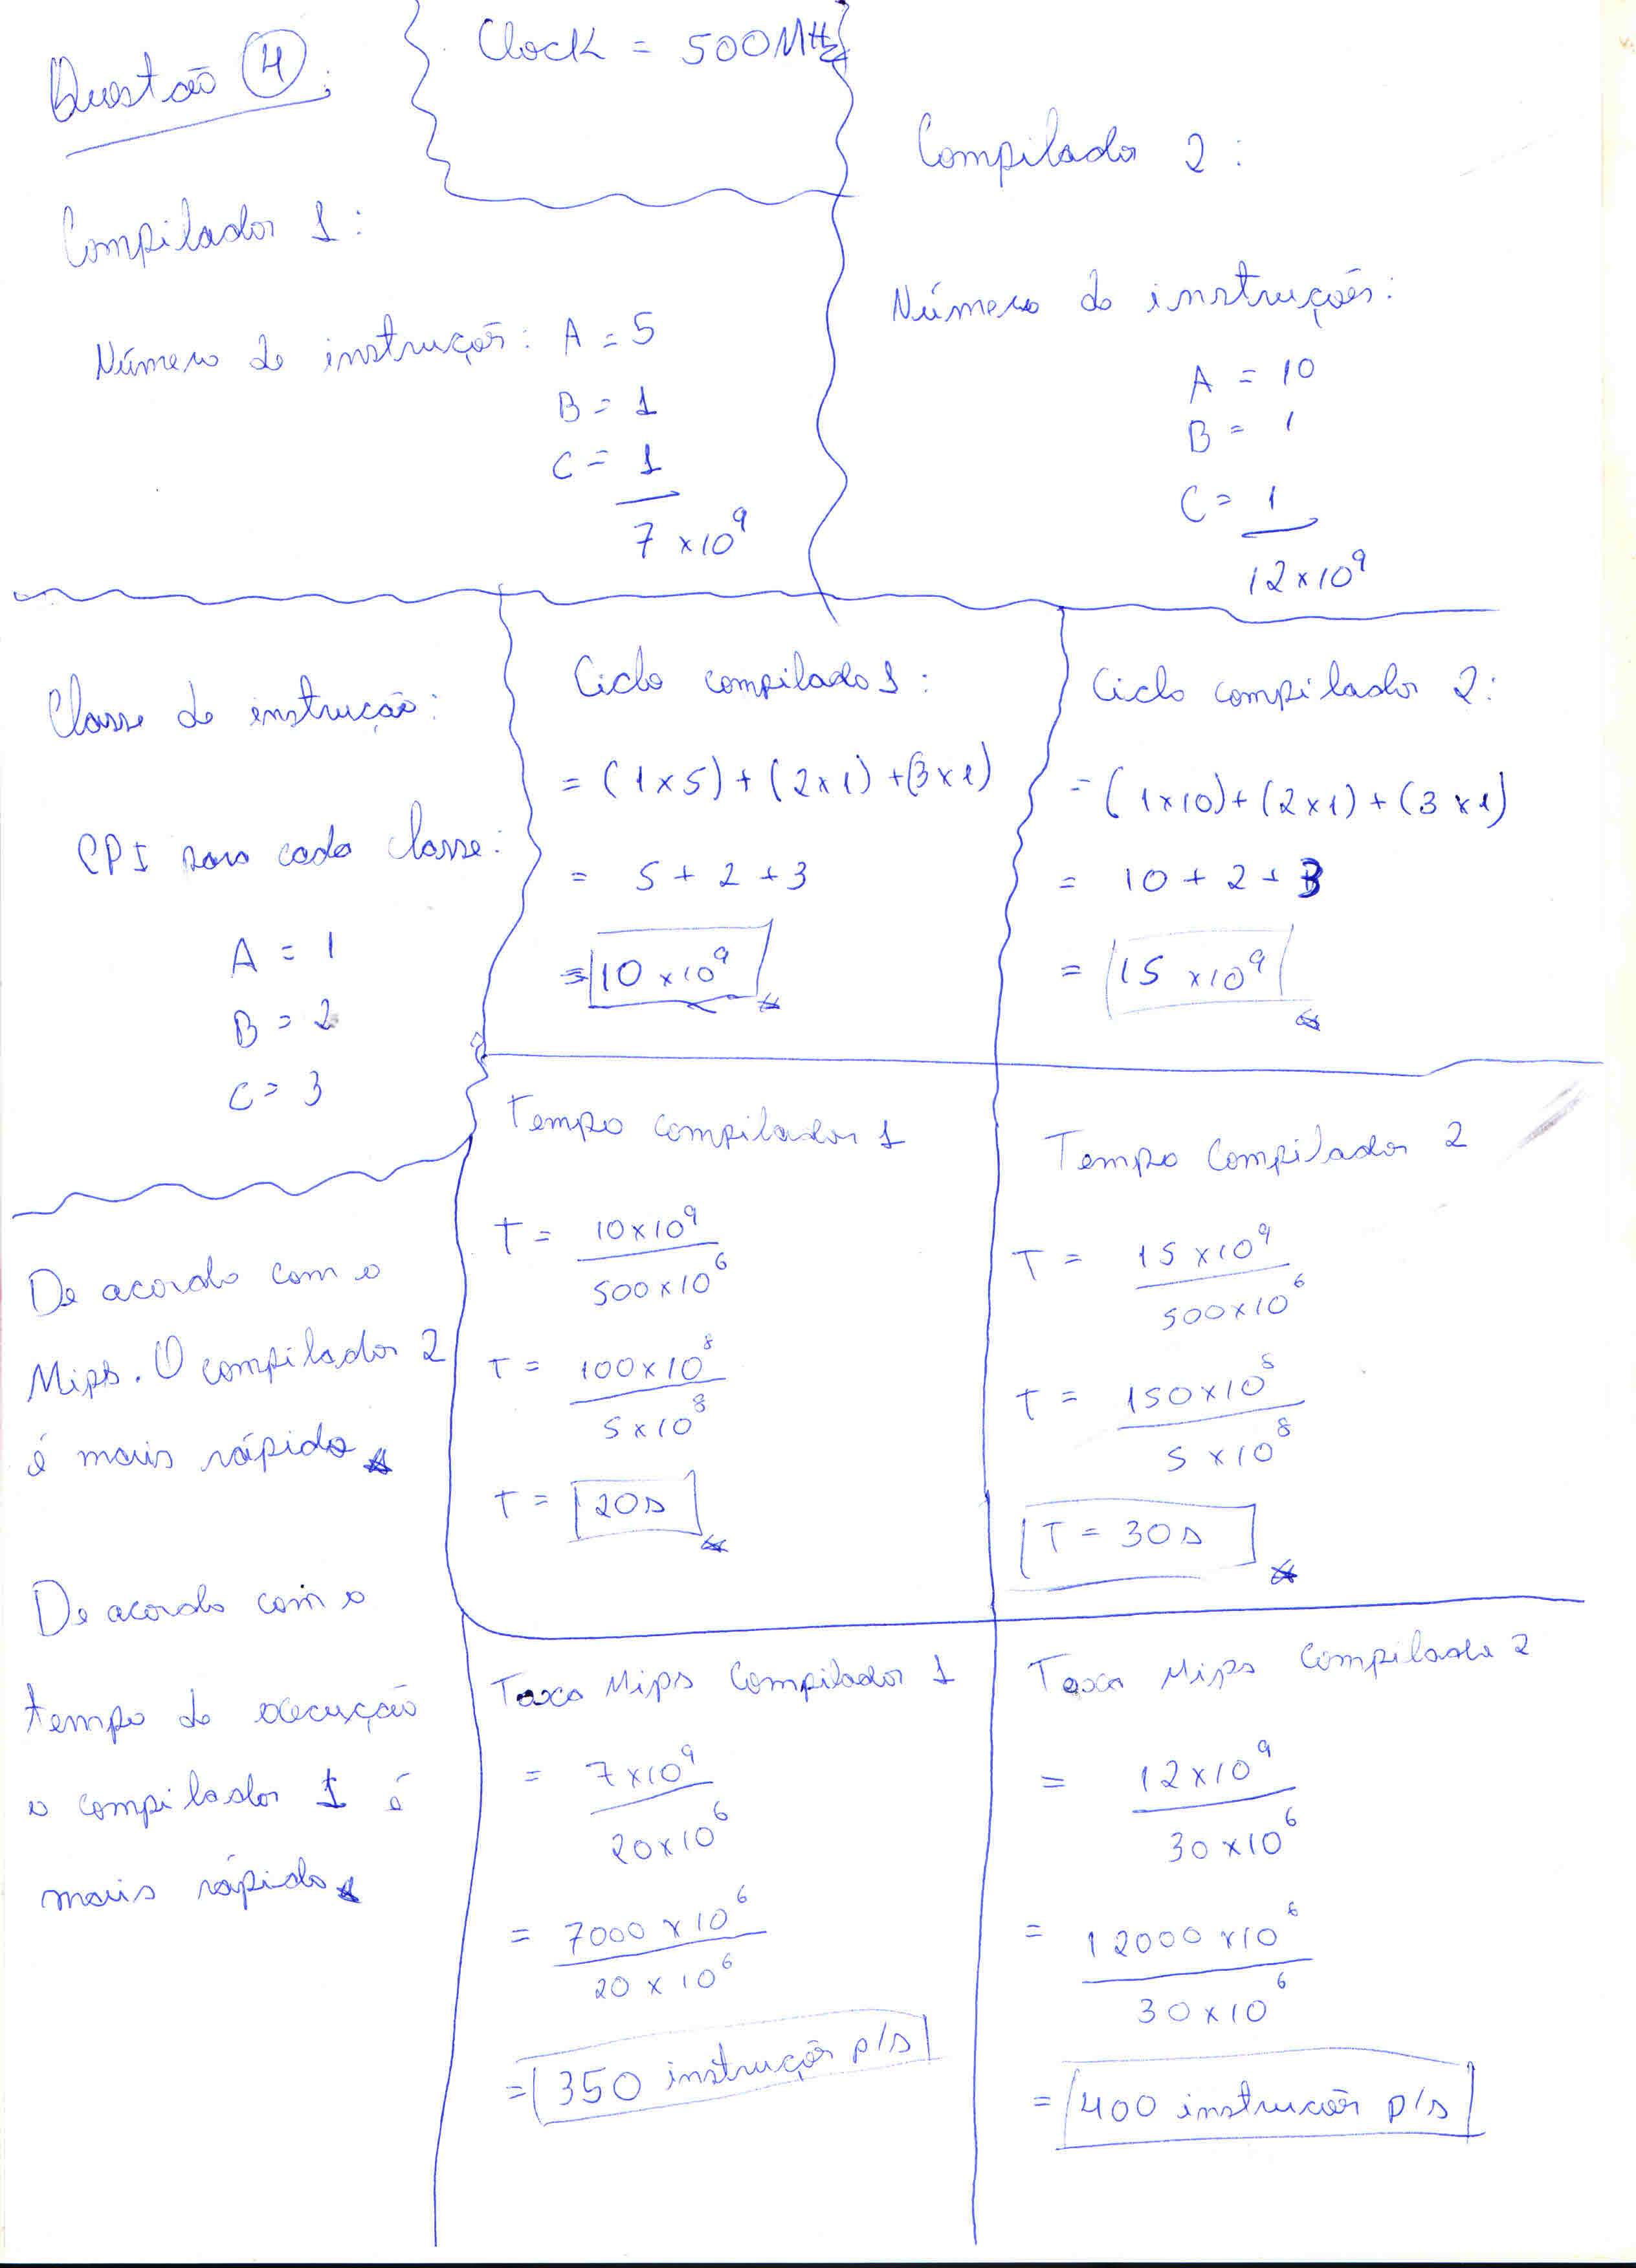 Questão 4:
Clock = 500MHz
Compilador 1:
Número de instruções: A = 5
B = 1
C = 1
7 x10^9
Compilador 2:
Número de instruções:
A = 10
B = 1
C = 1
12x10^9
Classe de instrução:
CPI para cada classe:
A = 1
B = 2
C = 3
Ciclo compilador 1:
= (1x5) + (2x1) + (3x1)
= 5 + 2 + 3
= 10 x10^9
Ciclo compilador 2:
= (1x10) + (2x1) + (3x1)
= 10 + 2 + 3
= 15 x10^9
Tempo compilador 1
T = 10x10^9 / 500x10^6
T = 100x10^8 / 5x10^8
T = 20s
Tempo Compilador 2
T = 15x10^9 / 500x10^6
T = 150x10^8 / 5x10^8
T = 30s
De acordo com o
Mips. O compilador 2
é mais rápido
De acordo com o
tempo de execução
o compilador 1 é
mais rápido
Taxa Mips Compilador 1
= 7x10^9 / 20x10^6
= 7000 x10^6 / 20x10^6
= 350 instruções p/s
Taxa Mips Compilador 2
= 12x10^9 / 30x10^6
= 12000 x10^6 / 30x10^6
= 400 instruções p/s